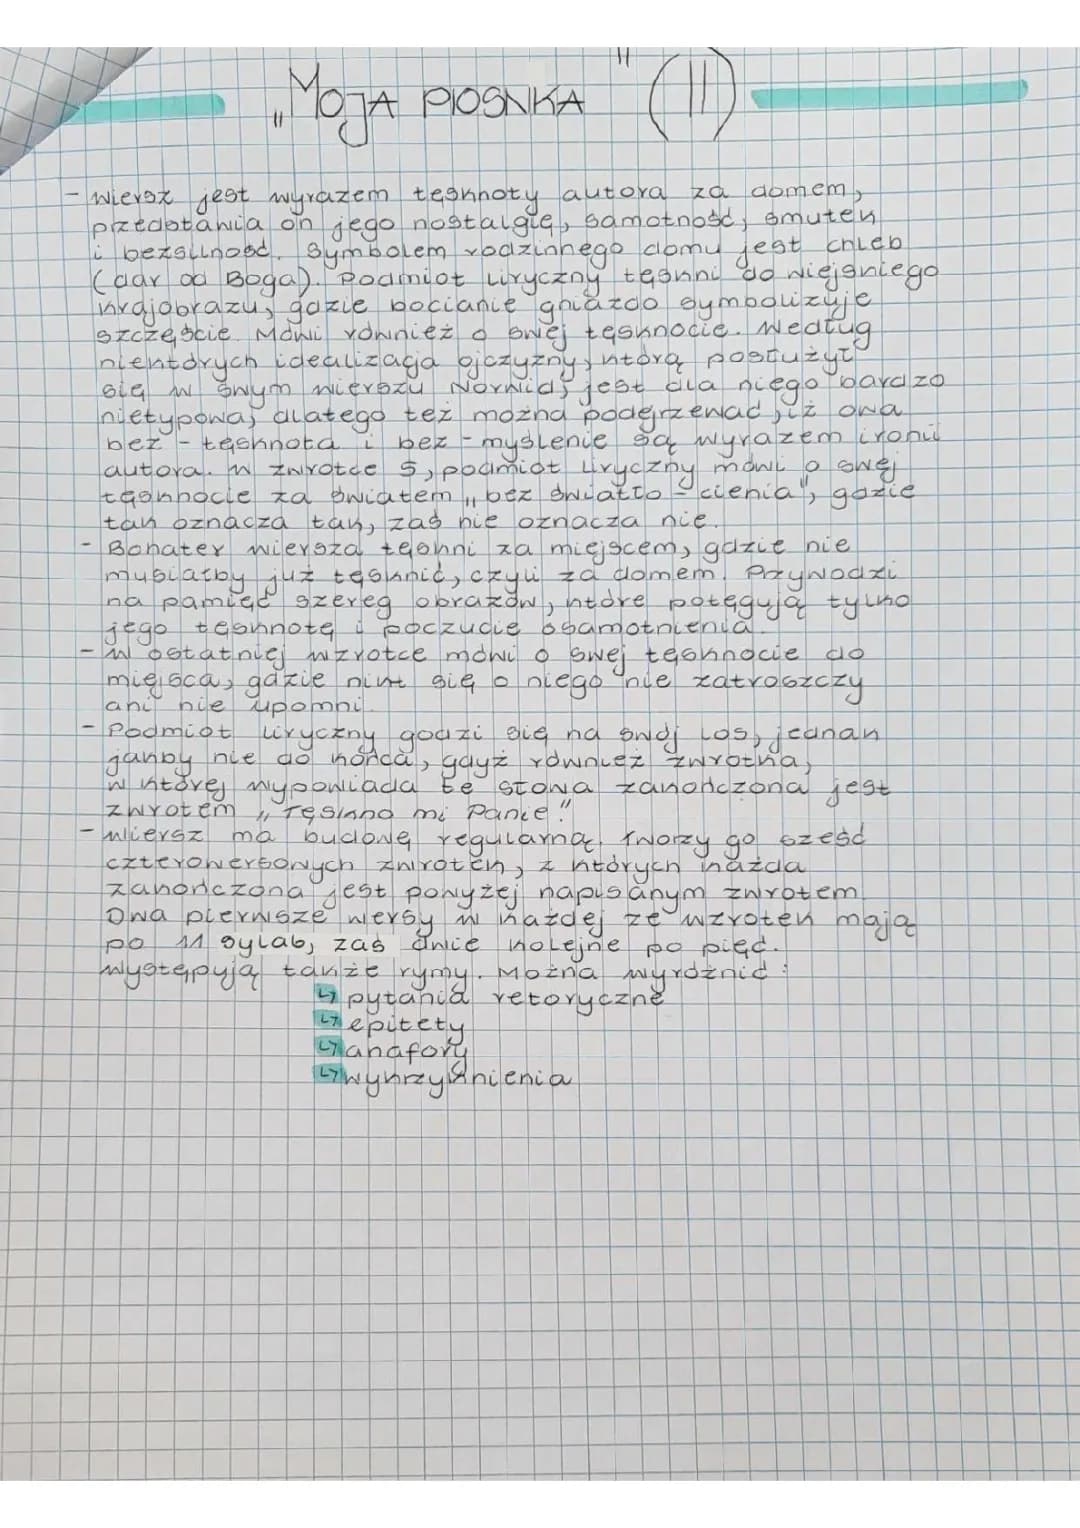 „MOJA PIOSNKA" (II)
- wiersz jest wyrazem tęsknoty autora za domem,
przedstawia on jego nostalgię, samotność, smutek
i bezsilność. Symbolem rodzinnego domu jest chleb
(dar od Boga). Podmiot liryczny tęskni do wiejskiego
krajobrazu, gdzie bocianie gniazdo symbolizuje
szczęście. Mówi również o swej tęsknocie. Według
niektórych idealizacja ojczyzny, którą posłużył
się w swym wierszu Norwid, jest dla niego bardzo
nietypowa, dlatego też można podejrzewać, iż owa
bez - tęsknota i bez - myślenie są wyrazem ironii
autora. W zwrotce 5, podmiot liryczny mówi o swej
tęsknocie za światem „bez światło - cienia", gdzie
tak oznacza tak, zaś nie oznacza nie.
- Bohater wiersza tęskni za miejscem, gdzie nie
musiałby już tęsknić, czyli za domem. Przywodzi
na pamięć szereg obrazów, które potęgują tylko
jego tęsknotę i poczucie osamotnienia.
- W ostatniej wzrotce mówi o swej tęsknocie do
miejsca, gdzie nikt się o niego nie zatroszczy
ani nie upomni.
- Podmiot liryczny godzi się na swój los, jednak
jakby nie do końca, gdyż również zwrotka,
w której wypowiada te słowa zakończona jest
zwrotem „Tęskno mi Panie".
- Wiersz ma budowę regularną. Tworzy go sześć
czterowersowych zwrotek, z których każda
zakończona jest powyżej napisanym zwrotem.
Dwa pierwsze wersy w każdej ze wzrotek mają
po 11 sylab, zaś dwie kolejne po pięć.
Występują także rymy. Można wyróżnić:
↳ pytania retoryczne
↳ epitety
↳ anafory
↳ wykrzyknienia